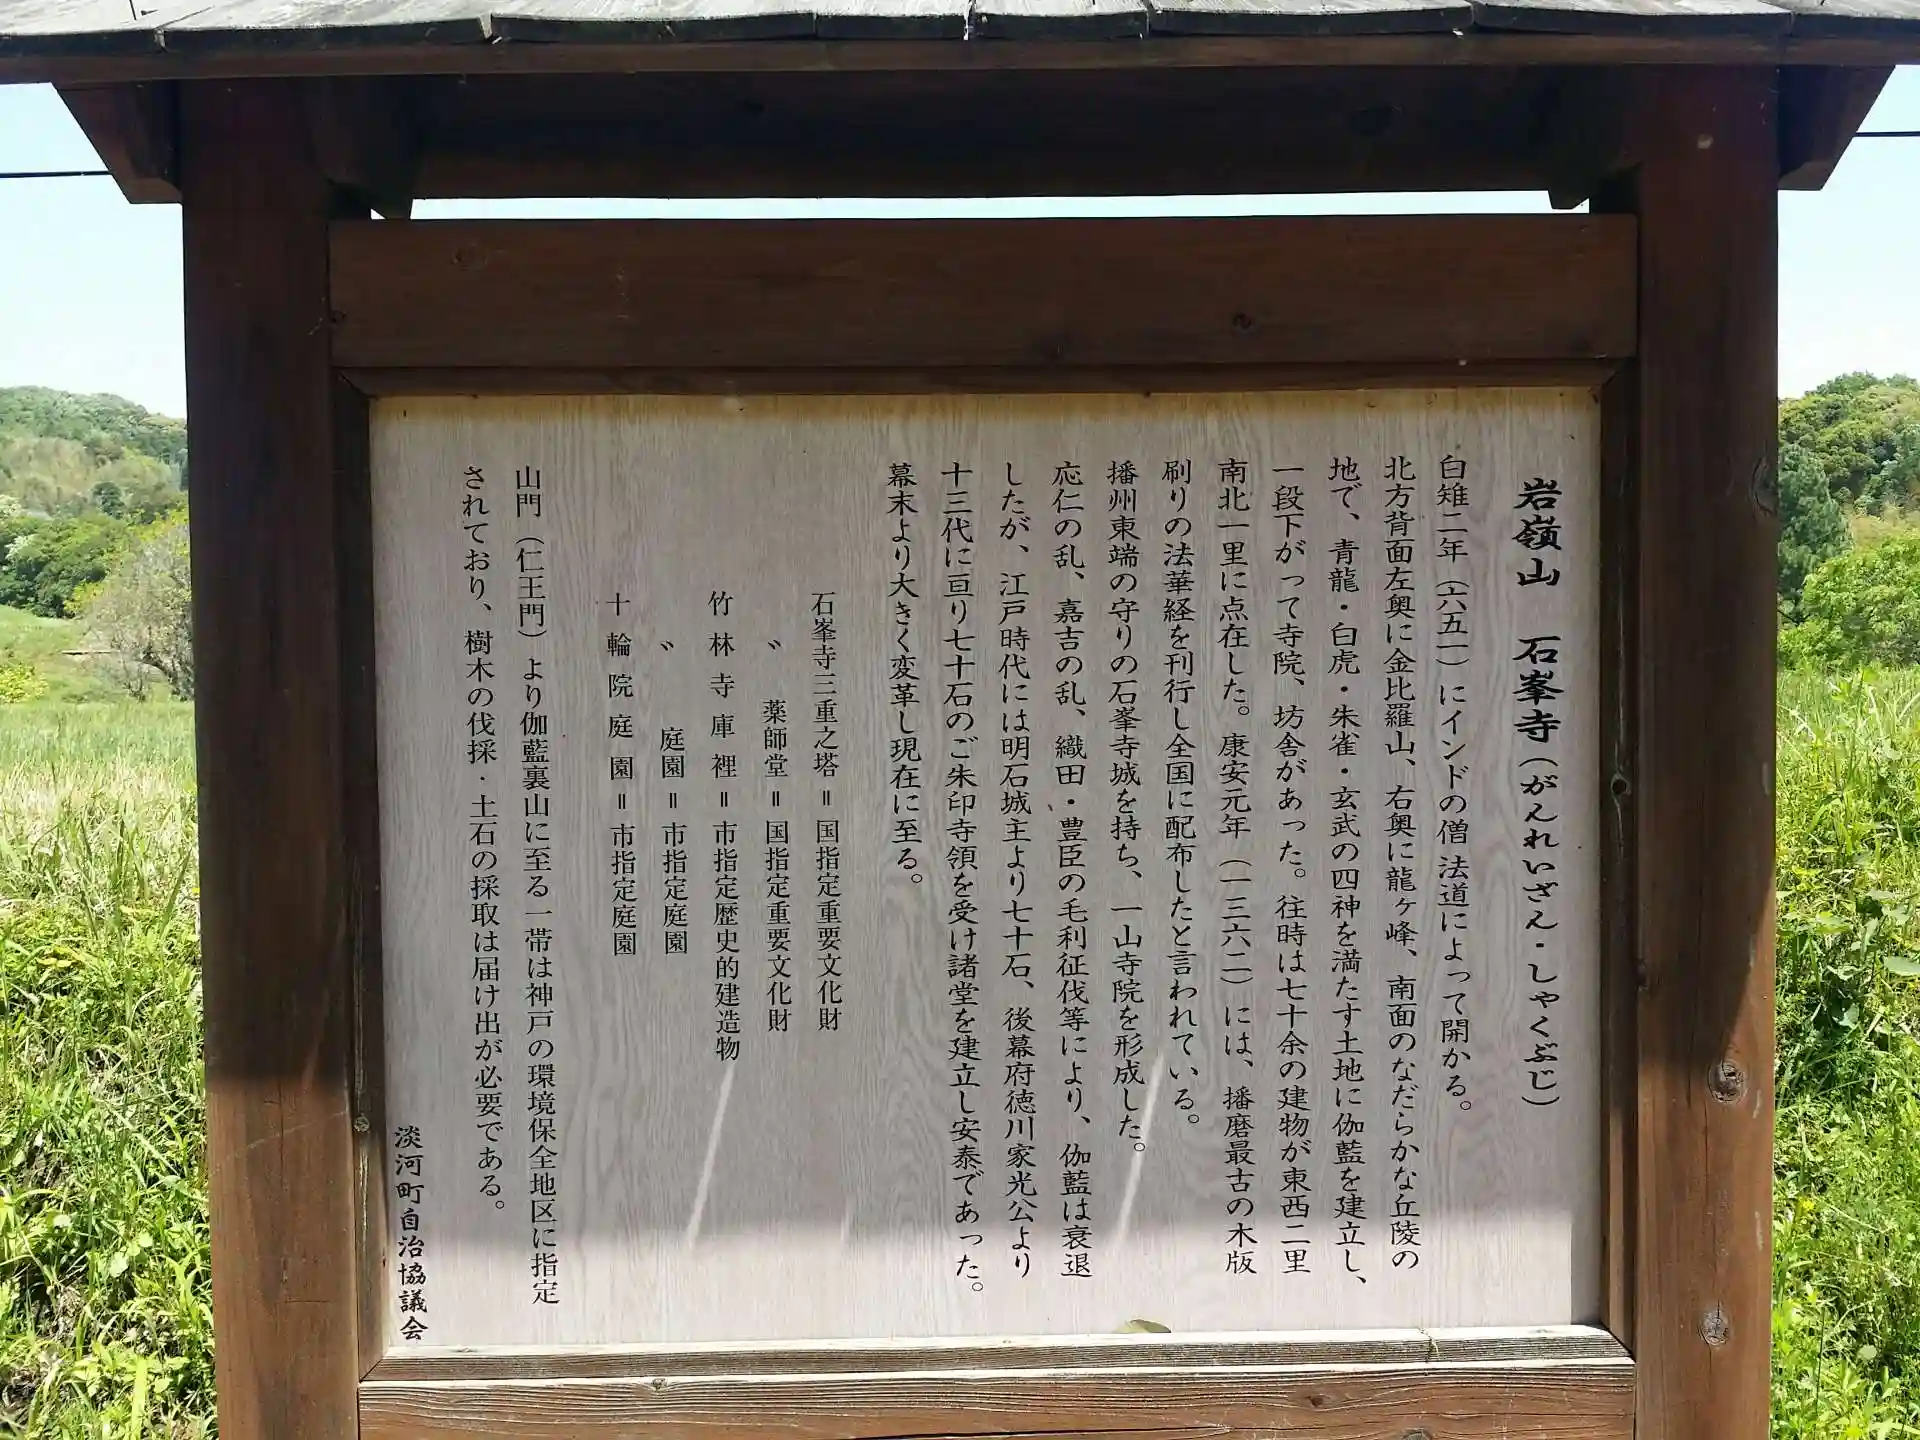 岩嶺山　石峯寺（がんれいざん・しゃくぶじ）
白雉二年（六五一）にインドの僧法道によって開かる。
北方背面左奥に金比羅山、右奥に龍ヶ峰、南面のなだらかな丘陵の
地で、青龍・白虎・朱雀・玄武の四神を満たす土地に伽藍を建立し、
一段下がって寺院、坊舎があった。往時は七十余の建物が東西二里
南北一里に点在した。康安元年（一三六二）には、播磨最古の木版
刷りの法華経を刊行し全国に配布したと言われている。
播州東端の守りの石峯寺城を持ち、一山寺院を形成した。
応仁の乱、嘉吉の乱、織田・豊臣の毛利征伐等により、伽藍は衰退
したが、江戸時代には明石城主より七十石、後幕府徳川家光公より
十三代に亘り七十石のご朱印寺領を受け諸堂を建立し安泰であった。
幕末より大きく変革し現在に至る。
石峯寺三重之塔＝国指定重要文化財
〃　薬師堂＝国指定重要文化財
竹林寺庫裡＝市指定歴史的建造物
〃　庭園＝市指定庭園
十輪院庭園＝市指定庭園
山門（仁王門）より伽藍裏山に至る一帯は神戸の環境保全地区に指定
されており、樹木の伐採・土石の採取は届け出が必要である。
淡河町自治協議会